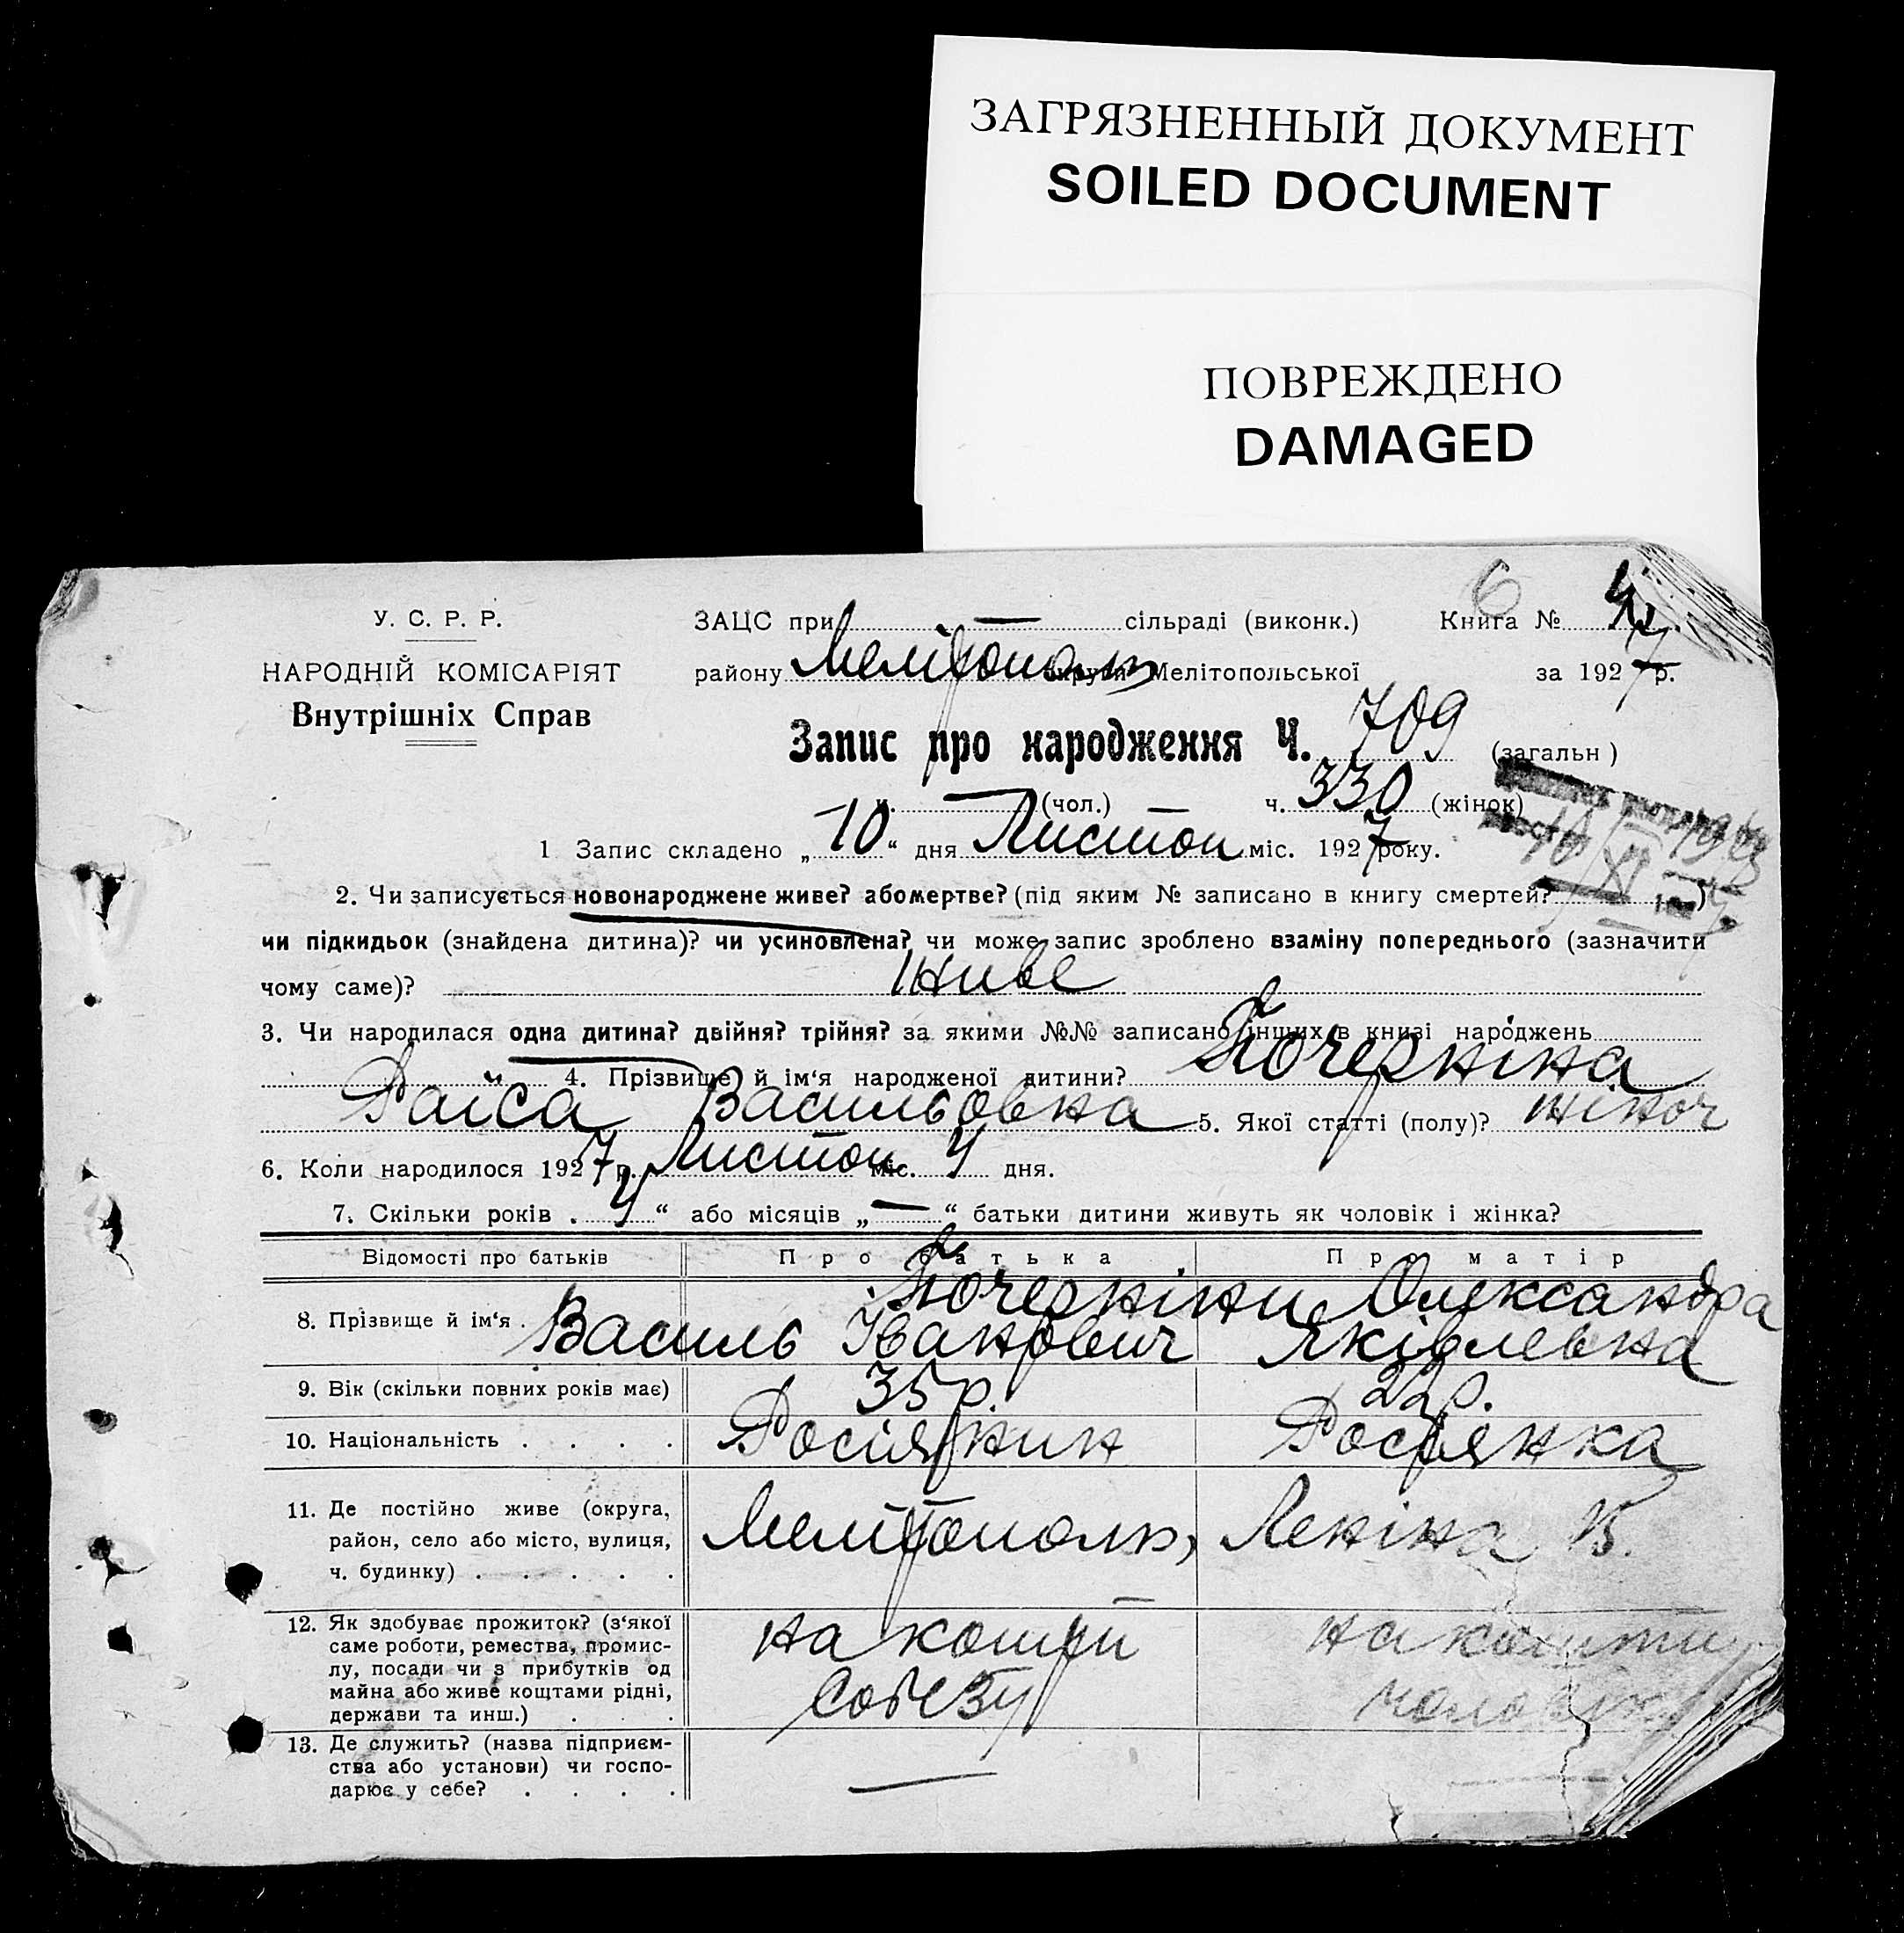 ЗАГРЯЗНЕННЫЙ ДОКУМЕНТ
SOILED DOCUMENT
ПОВРЕЖДЕНО
DAMAGED
6
У. С. Р. Р.
НАРОДНІЙ КОМІСАРІЯТ
Внутрішніх Справ
ЗАЦС при — сільраді (виконк.) Книга №
району Мелітополь округи Мелітопольської за 1927 р.
Запис про народження Ч. 709 (загальн )
ч. — (чол.) ч. 330 (жінок)
1 Запис складено „10“ дня Листоп міс. 1927 року.
2. Чи записується новонароджене живе? або мертве? (під яким № записано в книгу смертей? )
чи підкидьок (знайдена дитина)? чи усиновлена? чи може запис зроблено взаміну попереднього (зазначити
чому саме)? Живе
3. Чи народилася одна дитина? двійня? трійня? за якими №№ записано інших в книзі народжень
4. Прізвище й ім‘я народженої дитини? Почерніна
Раїса Васильовна 5. Якої статті (полу)? жіноч
6. Коли народилося 1927 р. Листоп міс. 4 дня.
7. Скільки років „4“ або місяців „—“ батьки дитини живуть як чоловік і жінка?
Відомості про батьків Про батька Про матір
8. Прізвище й ім‘я . Почерніни Олександра
Василь Іванович Яківлевна
9. Вік (скільки повних років має) 35 р. 22 р.
10. Національність . . . . Росіянин Росіянка
11. Де постійно живе (округа,
район, село або місто, вулиця,
ч. будинку) . . . . . Мелітополь, Леніна
12. Як здобуває прожиток? (з‘якої
саме роботи, ремества, промис-
лу, посади чи з прибутків од
майна або живе коштами рідні,
держави та инш.) . . . на кошти на кошти
Собезу чоловіка
13. Де служить? (назва підприєм-
ства або установи) чи госпо-
дарює у себе? . . . . —